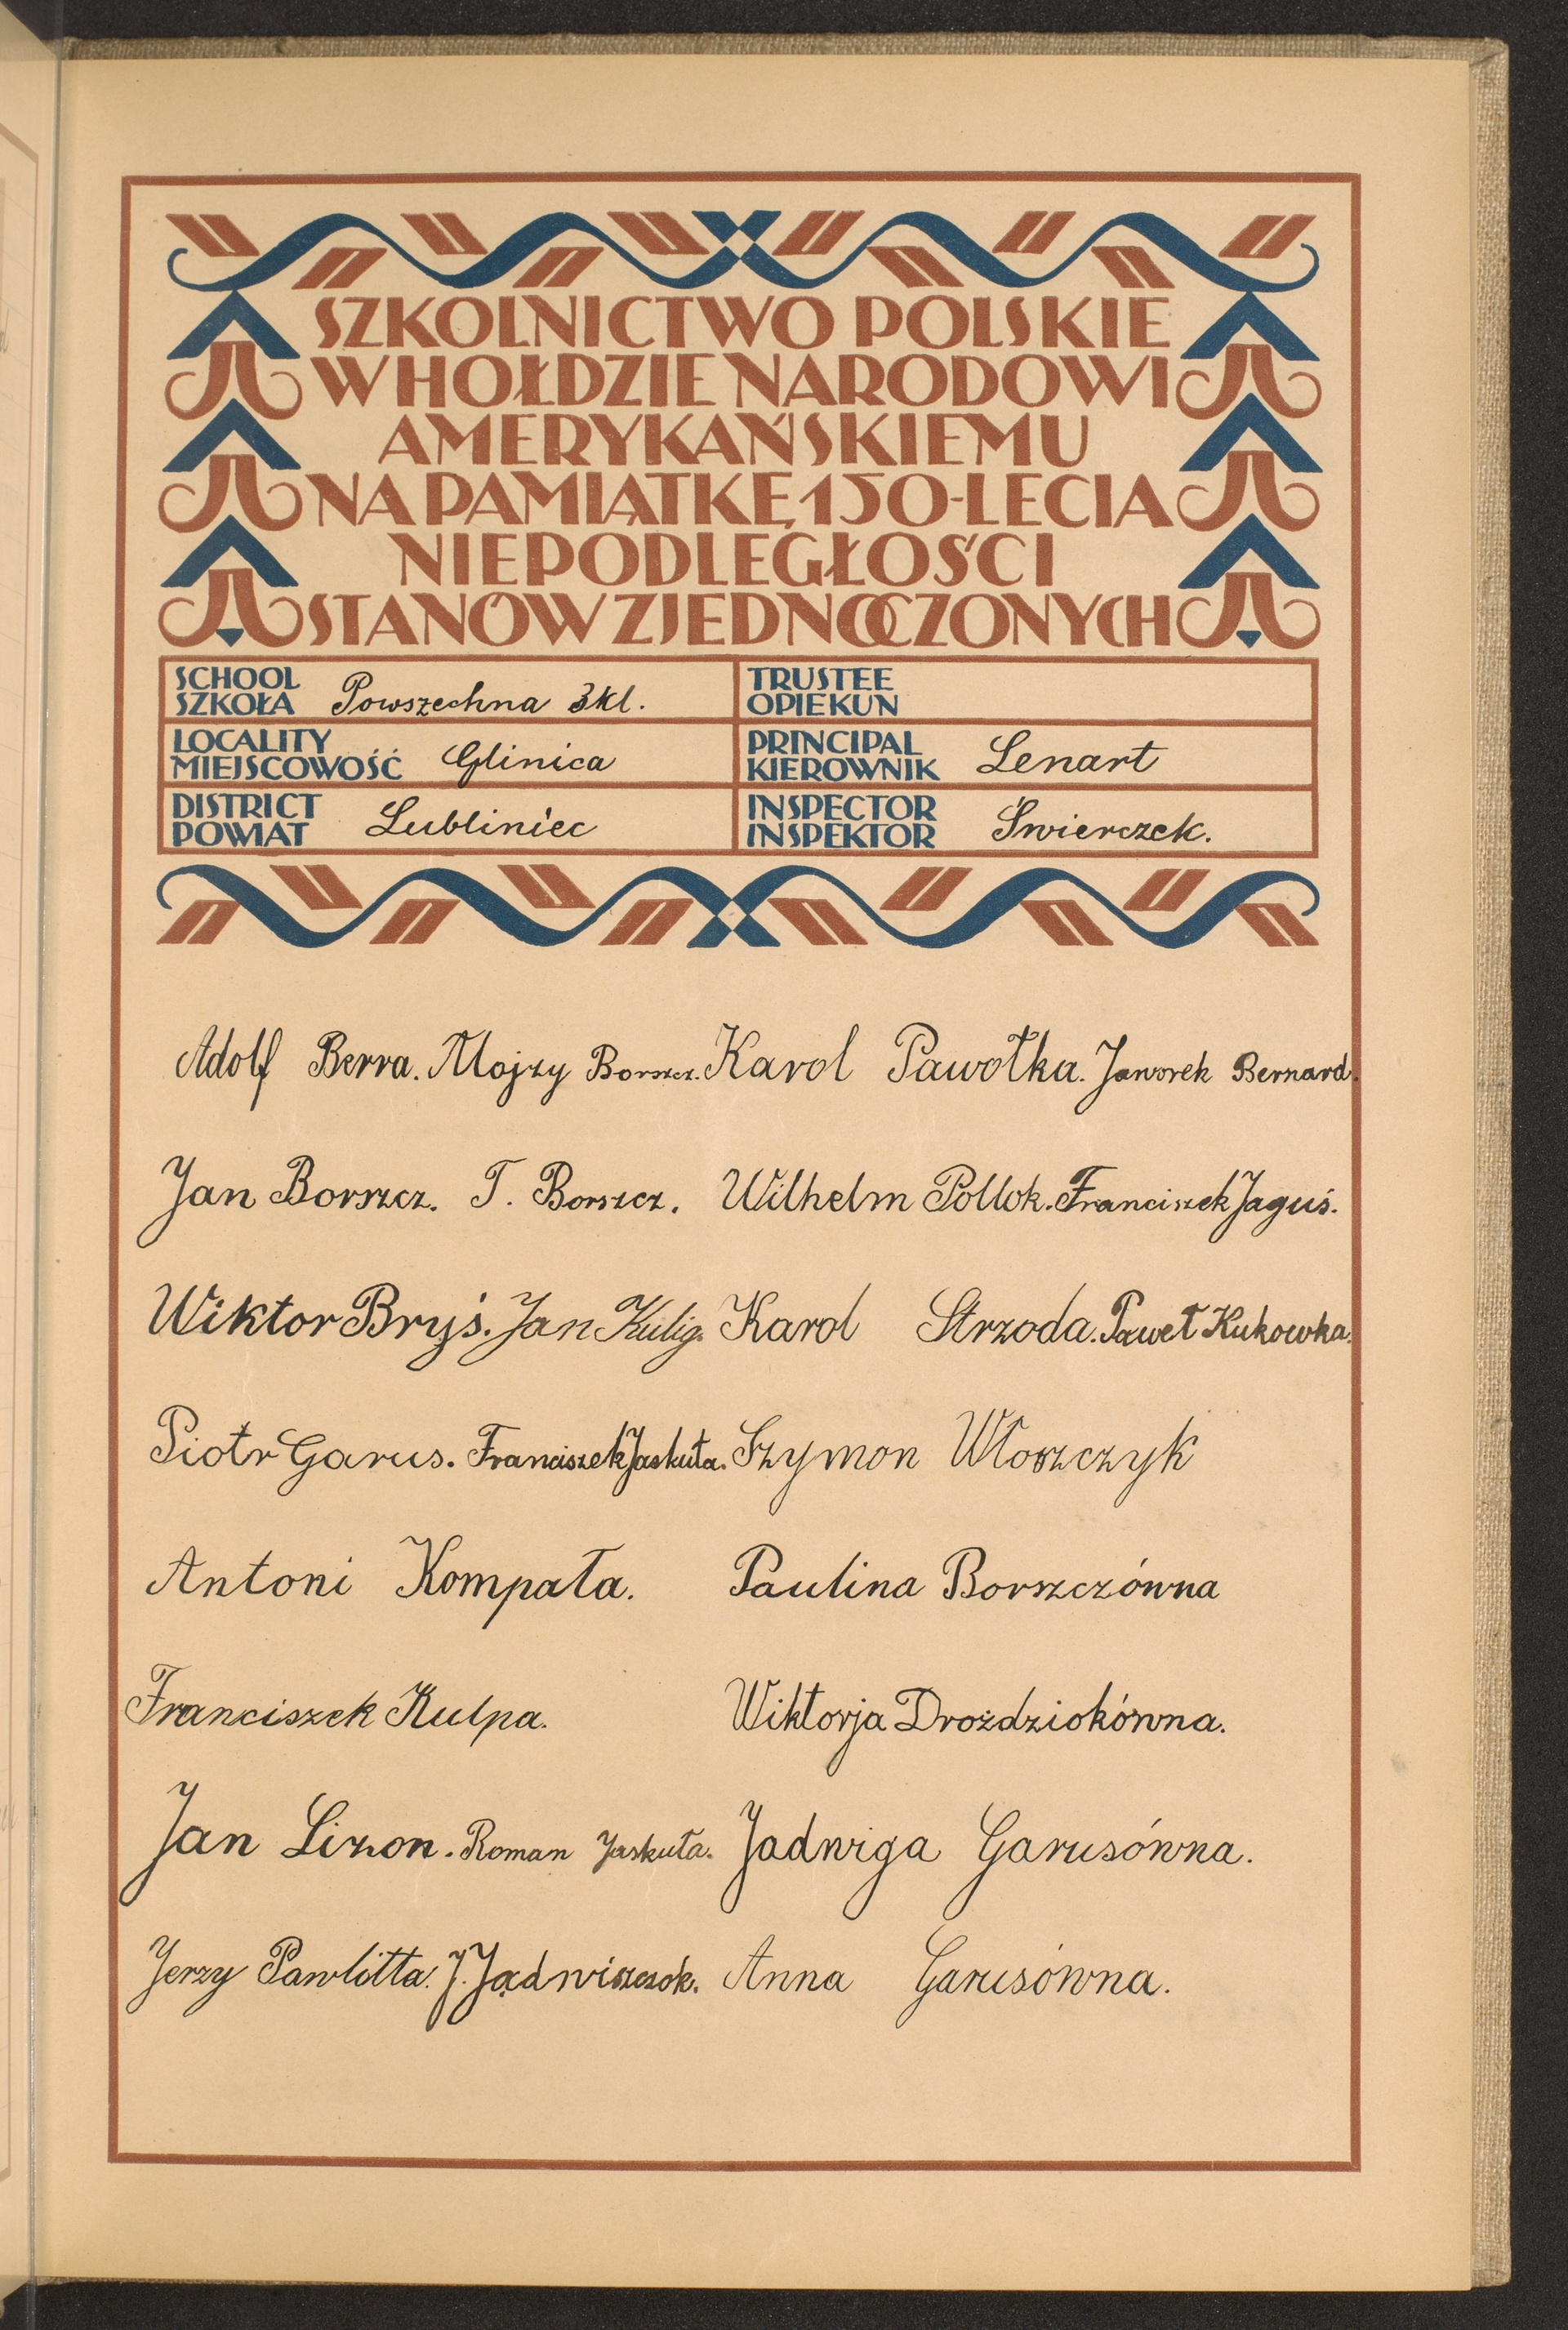 SZKOLNICTWO POLSKIE
W HOŁDZIE NARODOWI
AMERYKAŃSKIEMU
NA PAMIĄTKĘ 150-LECIA
NIEPODLEGŁOŚCI
STANÓW ZJEDNOCZONYCH
SCHOOL
SZKOŁA Powszechna 3kl.
TRUSTEE
OPIEKUN
LOCALITY
MIEJSCOWOŚĆ Glinica
PRINCIPAL
KIEROWNIK Lenart
DISTRICT
POWIAT Lubliniec
INSPECTOR
INSPEKTOR Świerczek.
Adolf Berra. Alojzy Borszcz. Karol Pawołka. Jaworek Bernard.
Jan Borszcz. T. Borszcz. Wilhelm Pollok. Franciszek Jaguś.
Wiktor Bryś. Jan Kulig. Karol Strzoda. Paweł Kukowka.
Piotr Garus. Franciszek Jaskuła. Szymon Włoszczyk
Antoni Kompała. Paulina Borszczówna
Franciszek Kulpa. Wiktorja Drożdziokówna.
Jan Lizon. Roman Jaskuła. Jadwiga Garusówna.
Jerzy Pawlitta. J. Anna Garusówna.